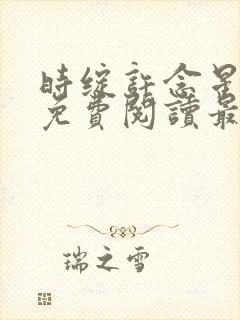 時綻許念星
免費閱讀最
瑞之雪